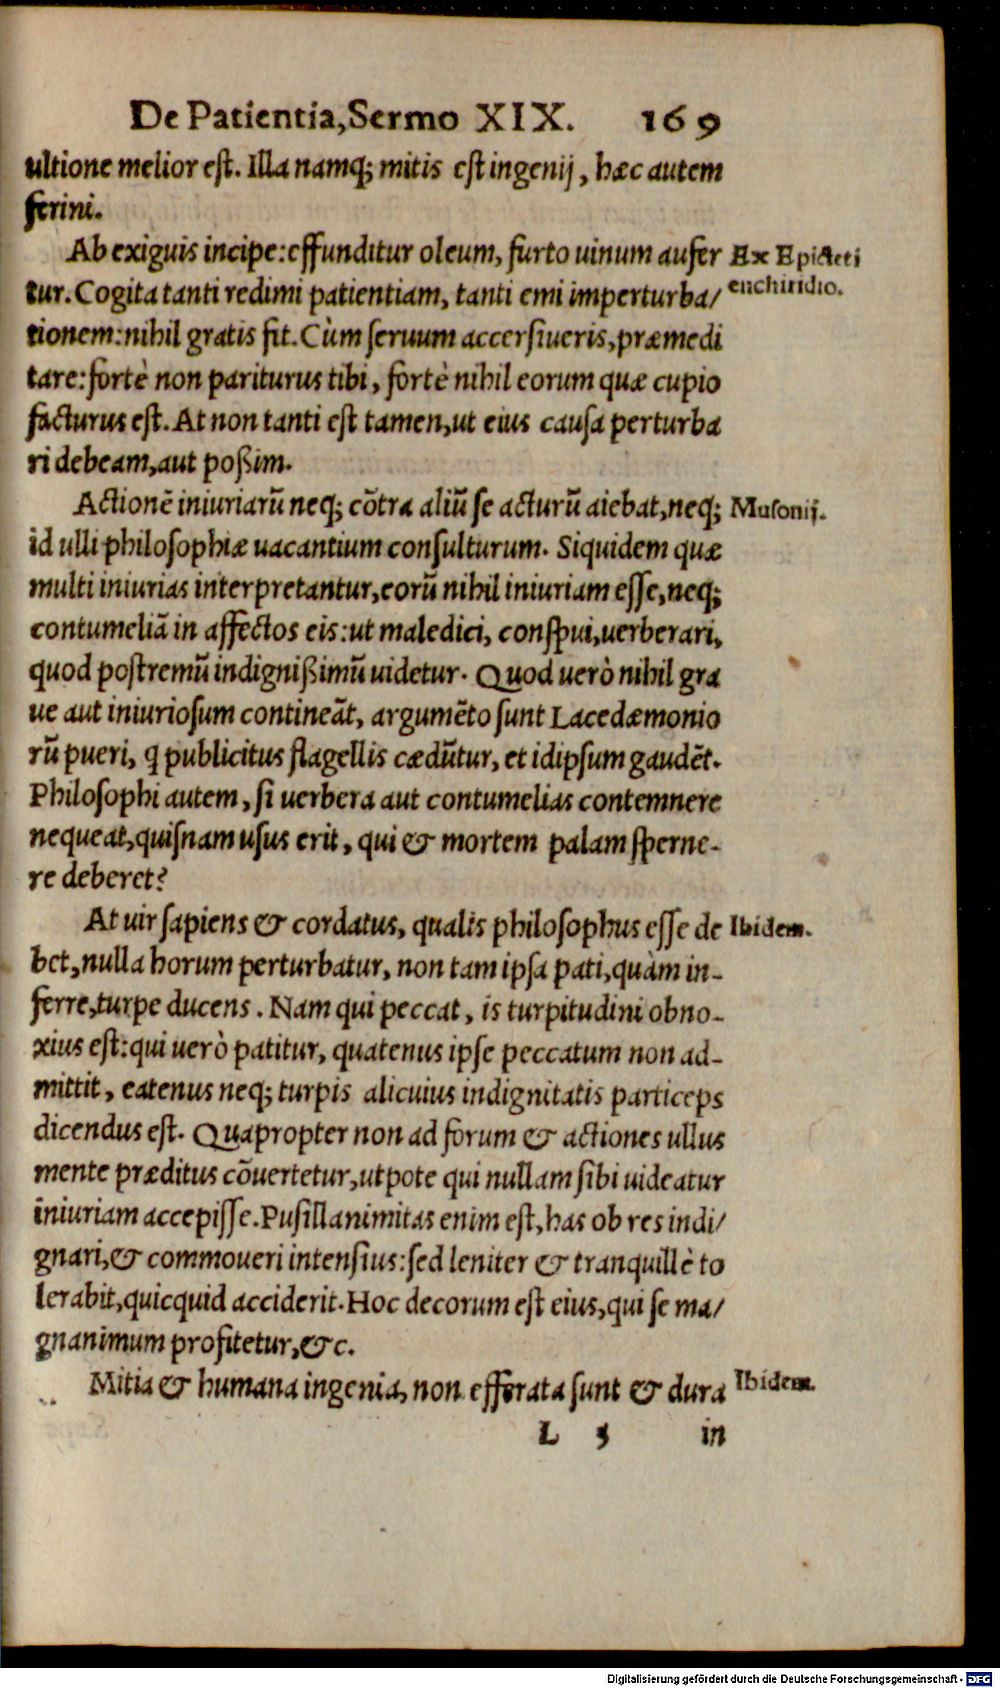 De Patientia, Sermo XIX. 169
ultione melior est. Illa namq; mitis est ingenij, hæc autem
ferini.
Ab exiguis incipe: effunditur oleum, furto uinum aufer
Ex Epicteti
tur. Cogita tanti redimi patientiam, tanti emi imperturba/
enchiridio.
tionem: nihil gratis fit. Cùm seruum accersiueris, præmedi
tare: fortè non pariturus tibi, fortè nihil eorum quæ cupio
facturus est. At non tanti est tamen, ut eius causa perturba
ri debeam, aut poßim.
Actionē iniuriarū neq; cōtra aliū se acturū aiebat, neq;
Musonij.
id ulli philosophiæ uacantium consulturum. Siquidem quæ
multi iniurias interpretantur, eorū nihil iniuriam esse, neq;
contumeliā in affectos eis: ut maledici, conspui, uerberari,
quod postremū indignißimū uidetur. Quod uerò nihil gra
ue aut iniuriosum contineāt, argumēto sunt Lacedæmonio
rū pueri, q̃ publicitus flagellis cædūtur, et id ipsum gaudēt.
Philosophi autem, si uerbera aut contumelias contemnere
nequeat, quisnam usus erit, qui & mortem palam sperne-
re deberet?
At uir sapiens & cordatus, qualis philosophus esse de
Ibidem.
bet, nulla horum perturbatur, non tam ipsa pati, quàm in-
ferre, turpe ducens. Nam qui peccat, is turpitudini obno-
xius est: qui uerò patitur, quatenus ipse peccatum non ad-
mittit, eatenus neq; turpis alicuius indignitatis particeps
dicendus est. Quapropter non ad forum & actiones ullus
mente præditus cōuertetur, utpote qui nullam sibi uideatur
iniuriam accepisse. Pusillanimitas enim est, has ob res indi/
gnari, & commoueri intensius: sed leniter & tranquillè to
lerabit, quicquid acciderit. Hoc decorum est eius, qui se ma/
gnanimum profitetur, &c.
Mitia & humana ingenia, non efferata sunt & dura
Ibidem.
L 5 in
Digitalisierung gefördert durch die Deutsche Forschungsgemeinschaft - DFG